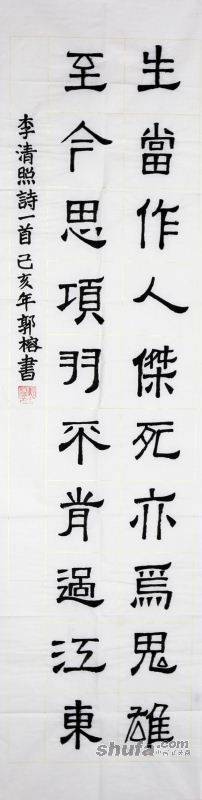 生當作人傑死亦爲鬼雄
至今思項羽不肯過江東
李清照詩一首己亥年郭榕書
shufa.com